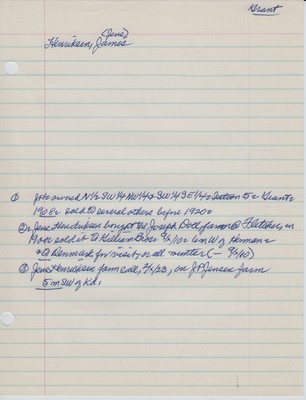 Grant
(Jens)
Henriksen, James
① Jote owned N 1/2 SW 1/4 NW 1/4 & SW 1/4 SE 1/4 Section 5 Grant
1908 sold to several others before 1920
② Jens Hendriksen bought the Joseph Doll farm @ Fletcher, in
sold it to Killian Bros 9/5/10 6 m W of Herman
to Denmark for visit, or all winter (- 9/5/10)
③ Jens Henriksen farm sale, 2/5/23, on J.P. Jensen farm
5 m SW of Kd.